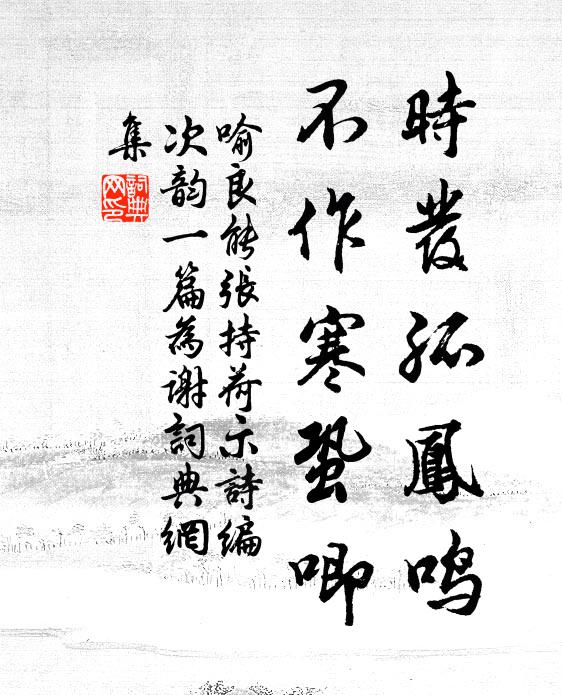 時發孤鳳鳴
不作寒蛩唧
喻良能張持荷示詩编
次韵一篇為谢詞典網
集
詞典网印